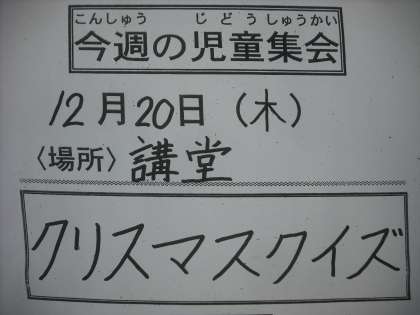 こんしゅう じどうしゅうかい
今週の児童集会
12月20日（木）
〈場所〉講堂
クリスマスクイズ